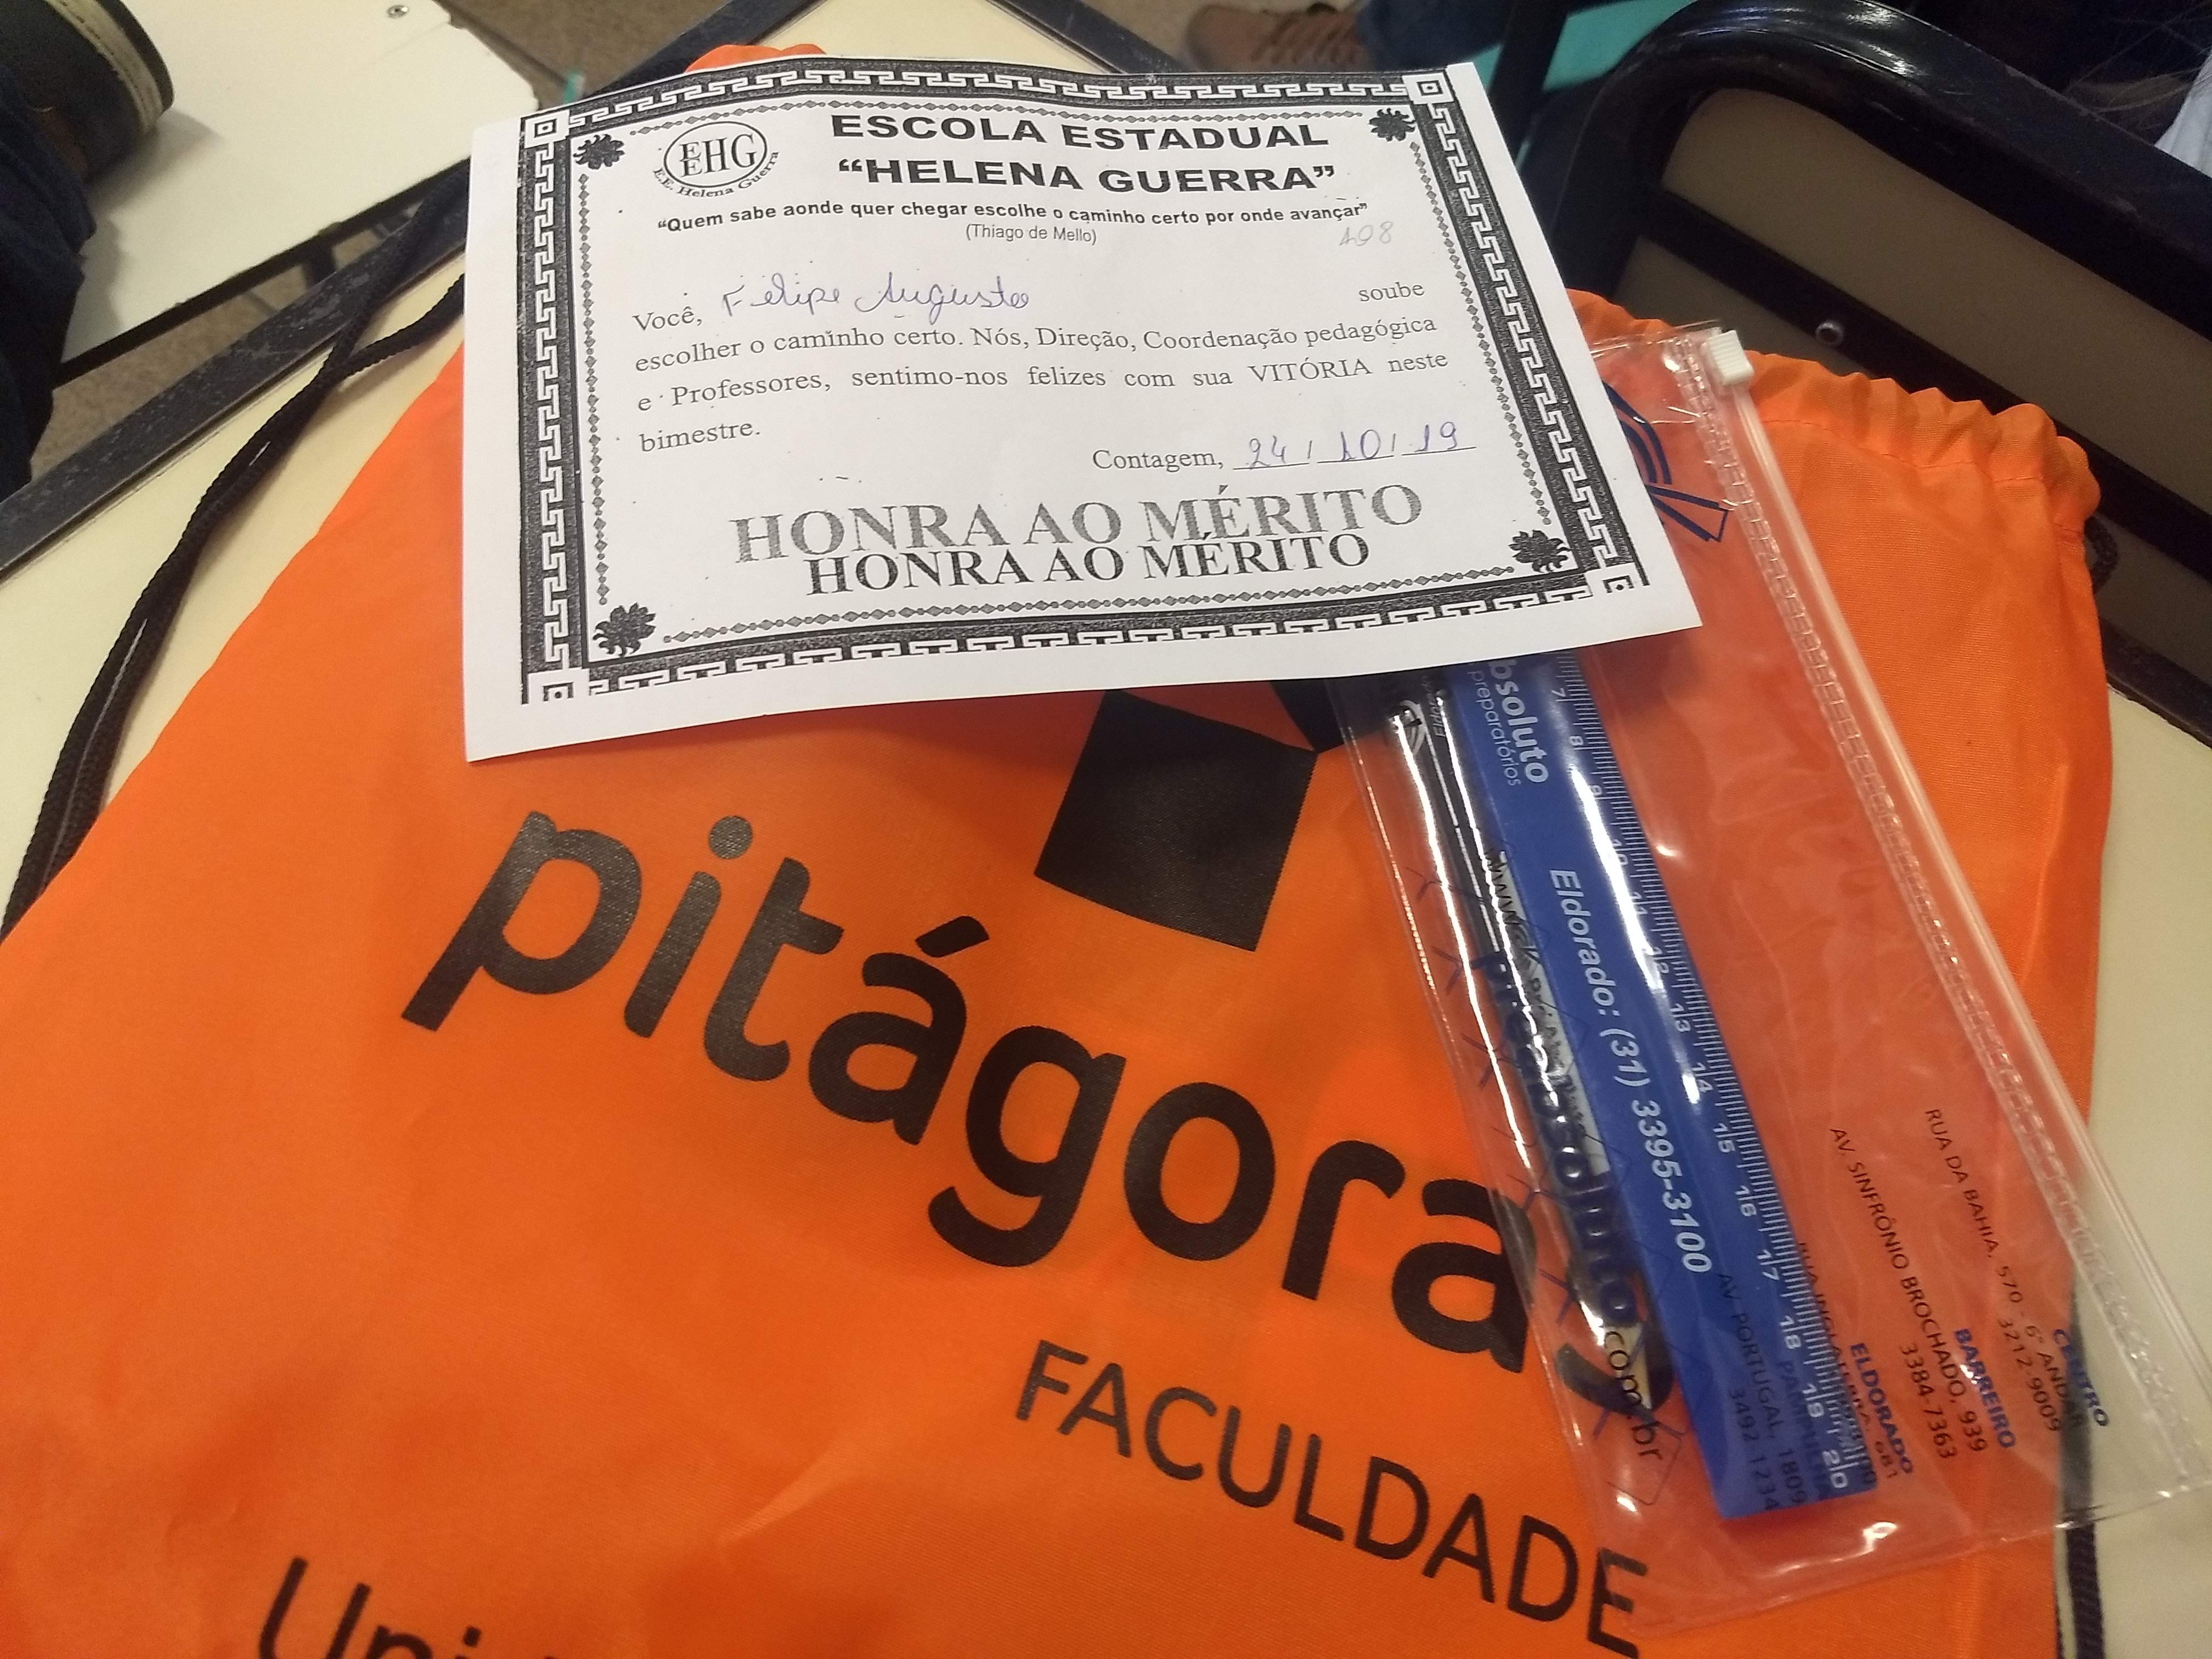 EEHG
E.E. Helena Guerra
ESCOLA ESTADUAL
“HELENA GUERRA”
“Quem sabe aonde quer chegar escolhe o caminho certo por onde avançar”
(Thiago de Mello)
108
Você, Felipe Augusto soube
escolher o caminho certo. Nós, Direção, Coordenação pedagógica
e Professores, sentimo-nos felizes com sua VITÓRIA neste
bimestre.
Contagem, 24/10/19
HONRA AO MÉRITO
HONRA AO MÉRITO
pitágoras
FACULDADE
bsoluto
preparatórios
Eldorado: (31) 3395-3100
7 8 9 10 11 12 13 14 15 16 17 18 19 20
.com.br
CENTRO
RUA DA BAHIA, 570 - 6° ANDAR
3212-9009
BARREIRO
AV. SINFRÔNIO BROCHADO, 939
3384-7363
ELDORADO
AV. PORTUGAL, 1809
3492-1234